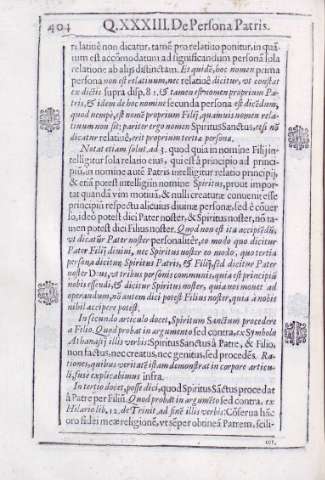 404 Q. XXXIII. De Persona Patris.
r. latiuè non dicatur, tamē pro relatiuo ponitur, in quā-
tum est accōmodatum ad significandum personā sola
relatione ab alijs distinctam. Et quidē, hoc nomen prima
persona non est relatiuum, nec relatiuè dicitur, vt constat
ex dictis supra disp. 81. & tamen est nomen proprium Pa-
tris, & idem de hoc nomine secunda persona est dicēdum,
quod nempè, est nomē proprium Filij, quamuis nomen rela-
tiuum non sit; pariter ergo nomen Spiritus Sanctus, etsi nō
dicatur relatiuè, erit proprium tertiæ personæ.
Notat etiam solut. ad 3. quod quia in nomine Filij in-
telligitur sola relatio eius, qui est à principio ad princi-
piū, in nomine autē Patris intelligitur relatio principij,
& etiā potest intelligi in nomine Spiritus, prout impor-
tat quandā vim motiuā, & nulli creaturæ conuenit esse
principiū respectu alicuius diuinæ personæ, sed è cōuer
so, ideò potest dici Pater noster, & Spiritus noster, nō ta-
men potest dici Filius noster. Quod non est ita accipiēdū,
vt dicatur Pater noster personalitèr, eo modo quo dicitur
Pater Filij diuini, nec Spiritus noster eo modo, quo tertia
persona dicitur Spiritus Patris, & Filij, sed dicitur Pater
noster Deus, vt tribus personis communis, quia est principiū
nobis essendi, & dicitur Spiritus noster, quia nos mouet ad
operandum, nō autem dici potest Filius noster, quia à nobis
nihil accipere potest.
In secundo articulo docet, Spiritum Sanctum procedere
a Filio. Quod probat in argumento sed contra, ex Symbolo
Athanasij illis verbis: Spiritus Sanctus à Patre, & Filio,
non factus, nec creatus, nec genitus, sed procedēs. Ra-
tiones, quibus veritatē istam demonstrat in corpore articu-
li, fusè explicabimus infra.
In tertio docet, posse dici, quod Spiritus Sāctus procedat
à Patre per Filiū. Quod probat in argumēto sed contra. ex
Hilario lib. 12. de Trinit. ad finē illis verbis: Cōserua hāc
oro fidei meæ religionē, vt sēper obtineā Patrem, scili-
cet,